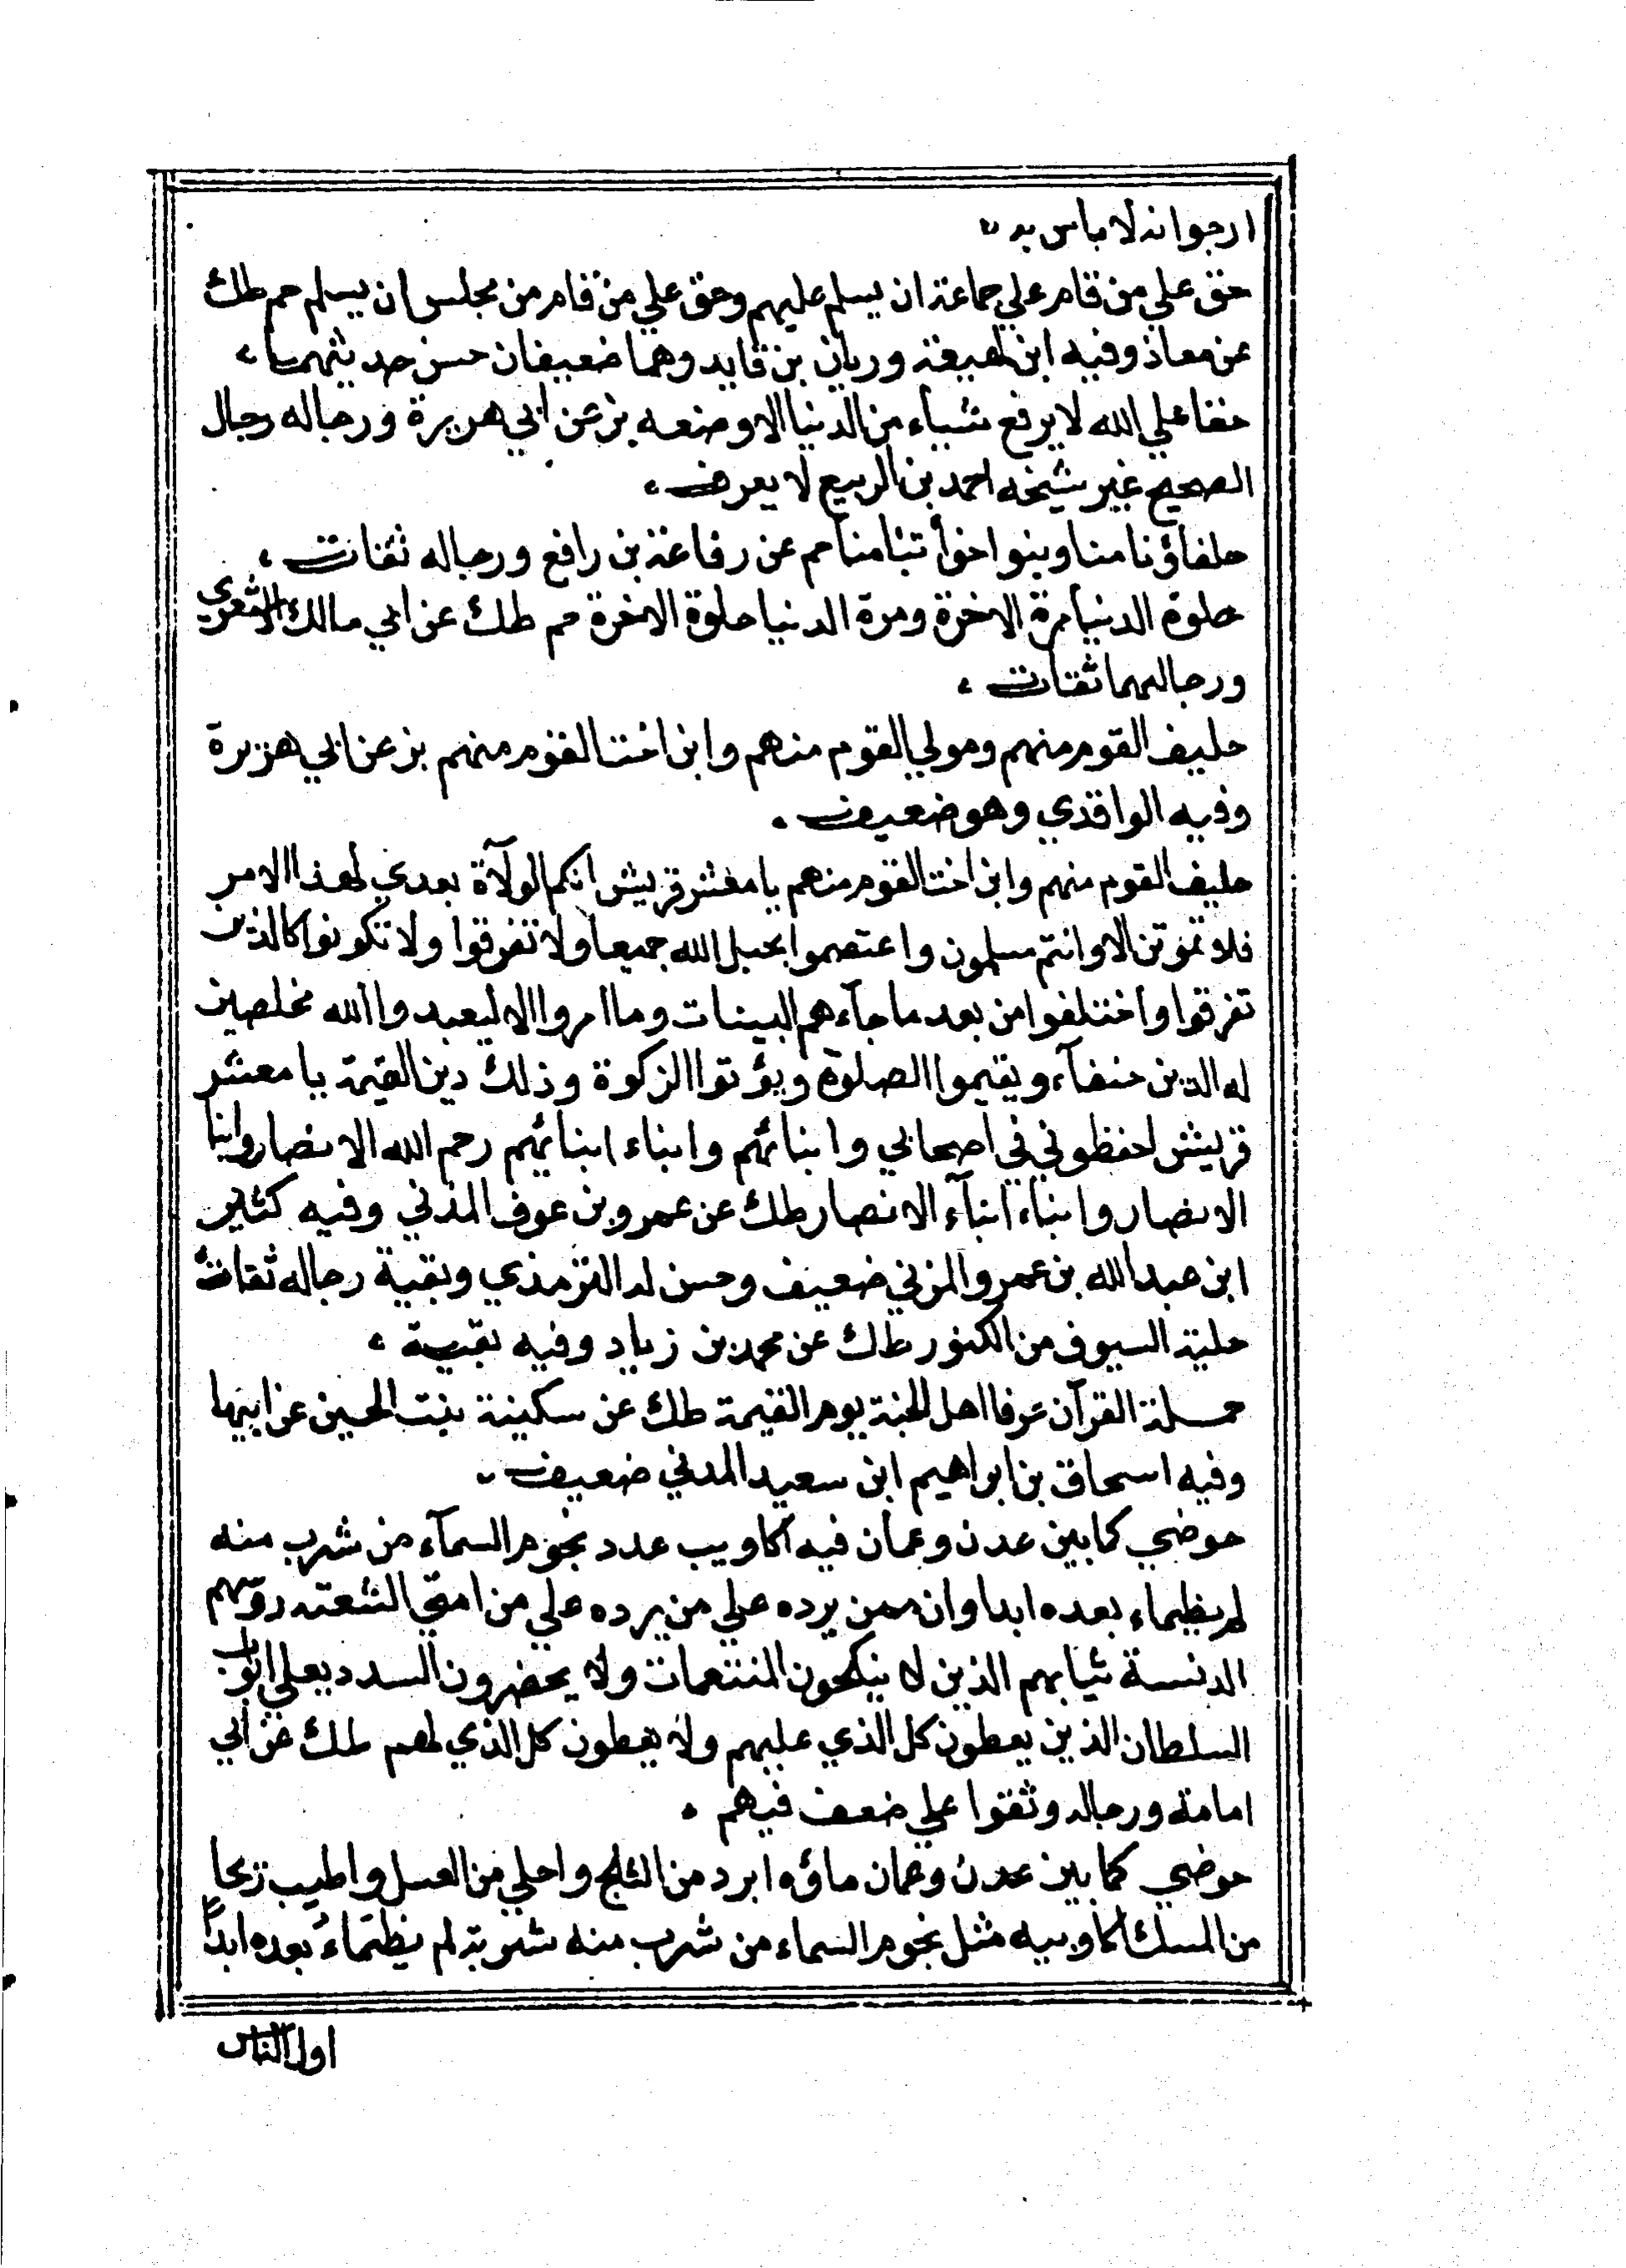 ارجو انه لا باس به
حق علي من قام علي جماعة ان يسلم عليهم وحق علي من قام من مجلس ان يسلم حم طك
عن معاذ وفيه ابن لهيعة وربان بن فايد وهما ضعيفان حسن حديثهما
حقا علي الله لا يرفع شياء من الدنيا الا وضعه بز عن ابي هريرة ورجاله رجال
الصحيح غير شيخه احمد بن الربيع لا يعرف
حلفاؤنا منا وبنوا اخواتنا منا حم عن رفاعة بن رافع ورجاله ثقات
حلوة الدنيا مرة الاخرة ومرة الدنيا حلوة الاخرة حم طك عن ابي مالك الاشعري
ورجالهما ثقات
حليف القوم منهم ومولي القوم منهم وابن اخت القوم منهم بز عن ابي هريرة
وفيه الواقدي وهو ضعيف
حليف القوم منهم وابن اخت القوم منهم يا معشر قريش انكم الولاة بعدي لهذا الامر
فلا تموتن الا وانتم مسلمون واعتصموا بحبل الله جميعا ولا تفرقوا ولا تكونوا كالذين
تفرقوا واختلفوا من بعد ما جآءهم البينات وما امروا الا ليعبدوا الله مخلصين
له الدين حنفآء ويقيموا الصلوة ويؤتوا الزكوة وذلك دين القيمة يا معشر
قريش احفظوني في اصحابي وابنائهم وابناء ابنائهم رحم الله الانصار وابنا
الانصار وابناء ابنآء الانصار طك عن عمرو بن عوف المزني وفيه كثير
ابن عبد الله بن عمرو المزني ضعيف وحسن له الترمذي وبقية رجاله ثقات
حلية السيوف من الكنوز طك عن محمد بن زياد وفيه بقية
حملة القرآن عرفا اهل الجنة يوم القيمة طك عن سكينة بنت الحسين عن ابيها
وفيه اسحاق بن ابراهيم ابن سعيد المدني ضعيف
حوضي كما بين عدن وعمان فيه اكاويب عدد نجوم السمآء من شرب منه
لم يظماء بعده ابدا وان ممن يرده علي من يرده علي من امتي الشعثه روسهم
الدنسة ثيابهم الذين لا ينكحون المنتعمات ولا يحضرون السدد يعلي ابواب
السلطان الذين يعطون كل الذي عليهم ولا يعطون كل الذي لهم طك عن ابي
امامة ورجاله وثقوا علي ضعف فيهم
حوضي كما بين عدن وعمان ماؤه ابرد من الثلج واحلي من العسل واطيب ريحا
من المسك اكاويبه مثل نجوم السماء من شرب منه شربة لم يظماء بعده ابداً
اول الناس